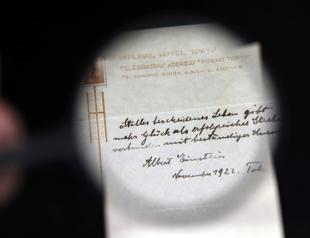 IMPERIAL HOTEL, TOKYO
TELEGRAPHIC ADDRESS
Stilles bescheidenes Leben gibt
mehr Glück als erfolgreiches Streben
verbunden mit beständiger Unruhe
Albert Einstein
November 1922. Tok